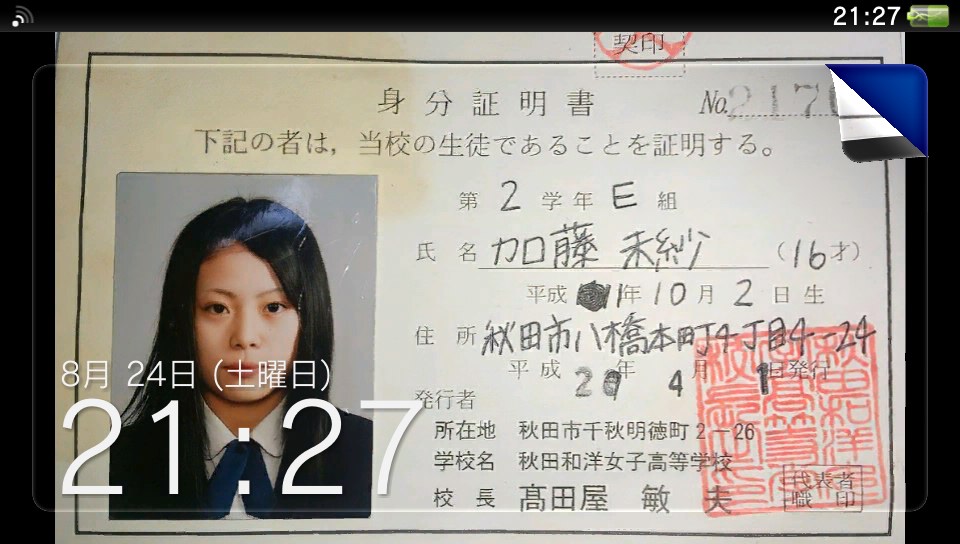 21:27
契印
身分証明書
No.2176
下記の者は,当校の生徒であることを証明する。
第 2 学年 E 組
氏名 加藤 未紗 (16才)
平成 11年 10月 2日生
住所 秋田市八橋本町4丁目4-24
平成 年 4月 1日発行
8月 24日 (土曜日)
21:27
発行者
所在地 秋田市千秋明徳町2-26
学校名 秋田和洋女子高等学校
校長 髙田屋 敏夫
代表者
職印